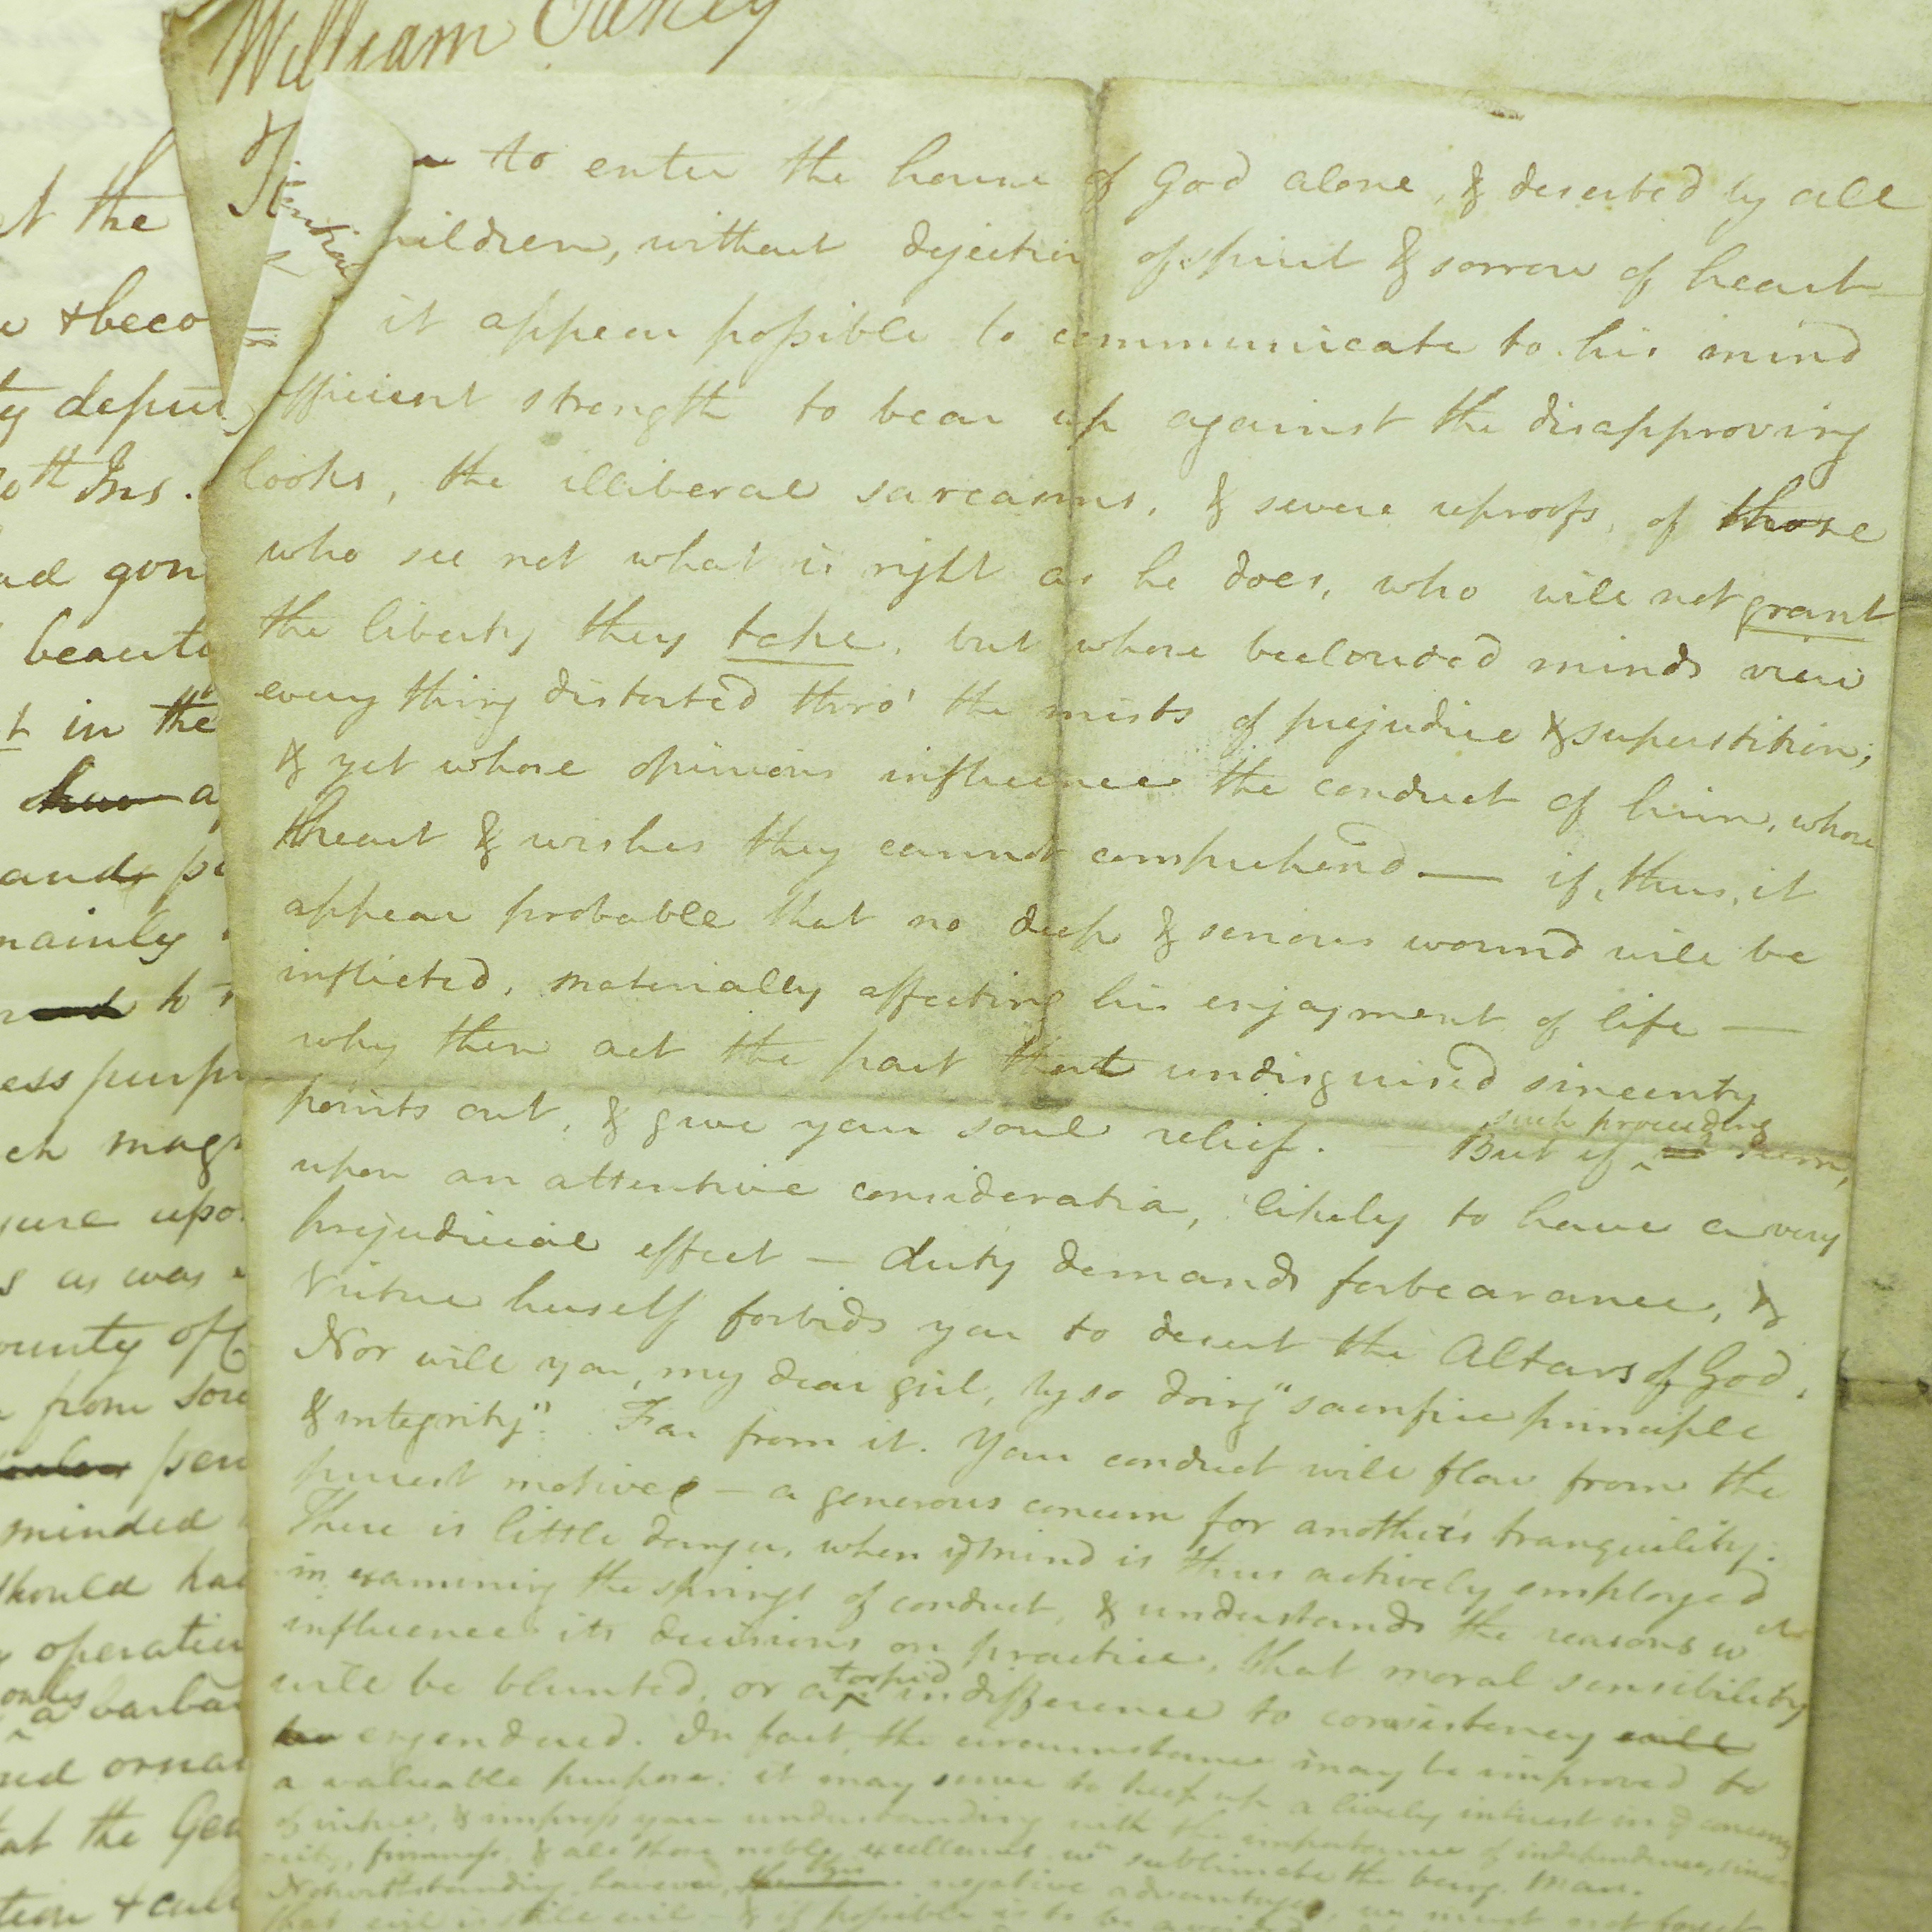 William
to enter the house of God alone, & deserted by all
children, without dejection of spirit & sorrow of heart
it appear possible to communicate to his mind
sufficient strength to bear up against the disapproving
looks, the illiberal sarcasms, & severe reproofs, of those
who see not what is right as he does, who will not grant
the liberty they take, but whose beclouded minds view
every thing distorted thro' the mists of prejudice & superstition;
& yet whose opinions influence the conduct of him, whose
heart & wishes they cannot comprehend — if, thus, it
appear probable that no deep & serious wound will be
inflicted, materially affecting his enjoyment of life —
why then act the part that undisguised sincerity
points out, & give your soul relief. — But if such proceeding seem,
upon an attentive consideratia, likely to have a very
prejudicial effect — duty demands forbearance, &
Virtue herself forbids you to desert the Altars of God.
Nor will you, my dear girl, by so doing "sacrifice principle
& integrity". Far from it. Your conduct will flow from the
purest motives — a generous concern for another's tranquility.
There is little danger, when ye mind is thus actively employed
in examining the springs of conduct, & understands the reasons wch
influence its decisions on practice, that moral sensibility
will be blunted, or a torpid indifference to consistency will
be engendered. In fact, the circumstance may be improved to
a valuable purpose: it may serve to keep up a lively interest in ye concerns
of virtue, & impress your understanding with the importance of independence,
firmness, & all those noble excellences wh sublimate the being, Man.
Notwithstanding, however, negative advantages, we must not forget
that evil is still evil & if possible is to be
t the
& beco
ty depu
th Ins.
ad gon
beauti
t in the
a
and pe
mainly
to
ess purp
ch mag
ure upo
s as was
ounty of
from
pen
minded
should ha
operation
only
a barba
ed orna
at the Gea
tion & cul